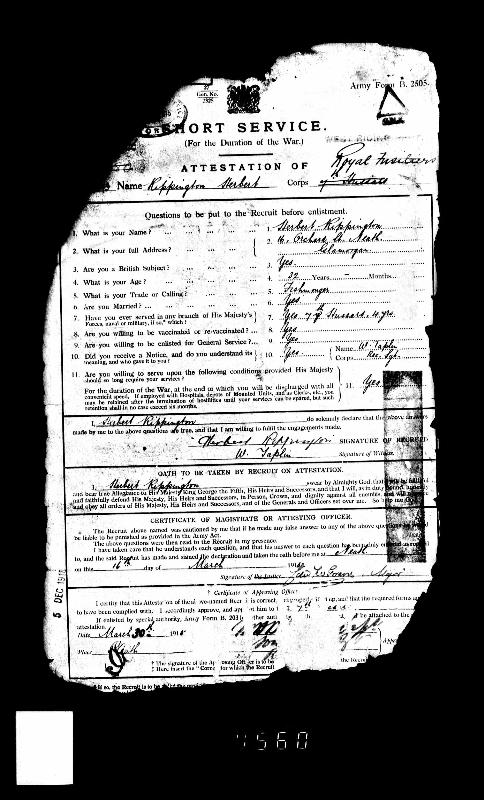 Army Form B. 2505.
SHORT SERVICE.
(For the Duration of the War.)
ATTESTATION OF
Royal Fusiliers
Name Rippington Herbert Corps 7th Hussars
Questions to be put to the Recruit before enlistment.
1. What is your Name? 1. Herbert Rippington
2. What is your full Address? 2. 16 Orchard St. Neath.
Glamorgan
3. Are you a British Subject? 3. Yes.
4. What is your Age? 4. 32 Years Months.
5. What is your Trade or Calling? 5. Fishmonger
6. Are you Married? 6. Yes
7. Have you ever served in any branch of His Majesty's 7. Yes 7th Hussars. 4 yrs.
Forces, naval or military, if so,* which?
8. Are you willing to be vaccinated or re-vaccinated? 8. Yes
9. Are you willing to be enlisted for General Service? 9. Yes
10. Did you receive a Notice, and do you understand its 10. Yes Name W. Taplin
meaning, and who gave it to you? Corps
11. Are you willing to serve upon the following conditions provided His Majesty
should so long require your services?
For the duration of the War, at the end of which you will be discharged with all 11. Yes
convenient speed. If employed with Hospitals, depots of Mounted Units, and as Clerks, etc., you
may be retained after the termination of hostilities until your services can be spared, but such
retention shall in no case exceed six months.
I, Herbert Rippington do solemnly declare that the above answers
made by me to the above questions are true, and that I am willing to fulfil the engagements made.
Herbert Rippington SIGNATURE OF RECRUIT.
W. Taplin Signature of Witness.
OATH TO BE TAKEN BY RECRUIT ON ATTESTATION.
I, Herbert Rippington swear by Almighty God, that I will be faithful
and bear true Allegiance to His Majesty King George the Fifth, His Heirs and Successors, and that I will, as in duty bound, honestly
and faithfully defend His Majesty, His Heirs and Successors, in Person, Crown, and dignity against all enemies, and will observe
and obey all orders of His Majesty, His Heirs and Successors, and of the Generals and Officers set over me. So help me God.
CERTIFICATE OF MAGISTRATE OR ATTESTING OFFICER.
The Recruit above named was cautioned by me that if he made any false answer to any of the above questions he would
be liable to be punished as provided in the Army Act.
The above questions were then read to the Recruit in my presence.
I have taken care that he understands each question, and that his answer to each question has been duly entered as
to, and the said Recruit has made and signed the declaration and taken the oath before me at Neath.
on this 16th day of March 191
Signature of the Justice Major
† Certificate of Approving Officer
I certify that this Attestation of the above-named Recruit is correct, and that the required forms
to have been complied with. I accordingly approve, and appoint him to
If enlisted by special authority, Army Form B. 203 to be attached to the
attestation.
Date March 30th 191
Place Neath
5 DEC 191
† The signature of the Approving Officer is to be
‡ Here insert the "Corps" for which the Recruit
4560